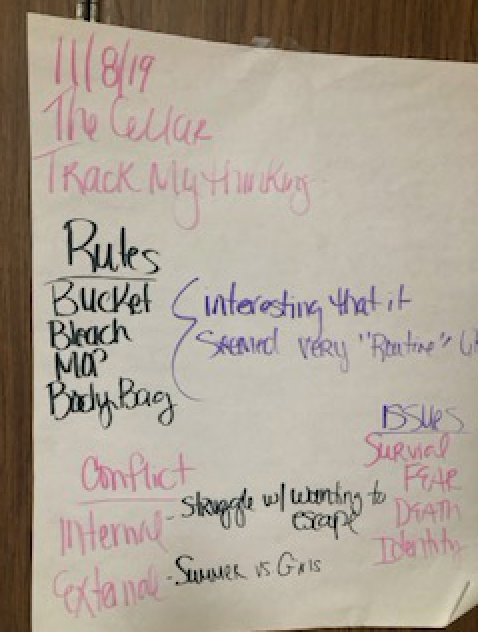 11/8/19
The Cellar
Track My thinking
Rules
Bucket
Bleach
Mop
Body Bag
interesting that it
seemed very "Routine"
Issues
Survial
FEAR
DEATH
Identity
Conflict
Internal - Struggle w/ wanting to
escape
External - Summer vs Girls